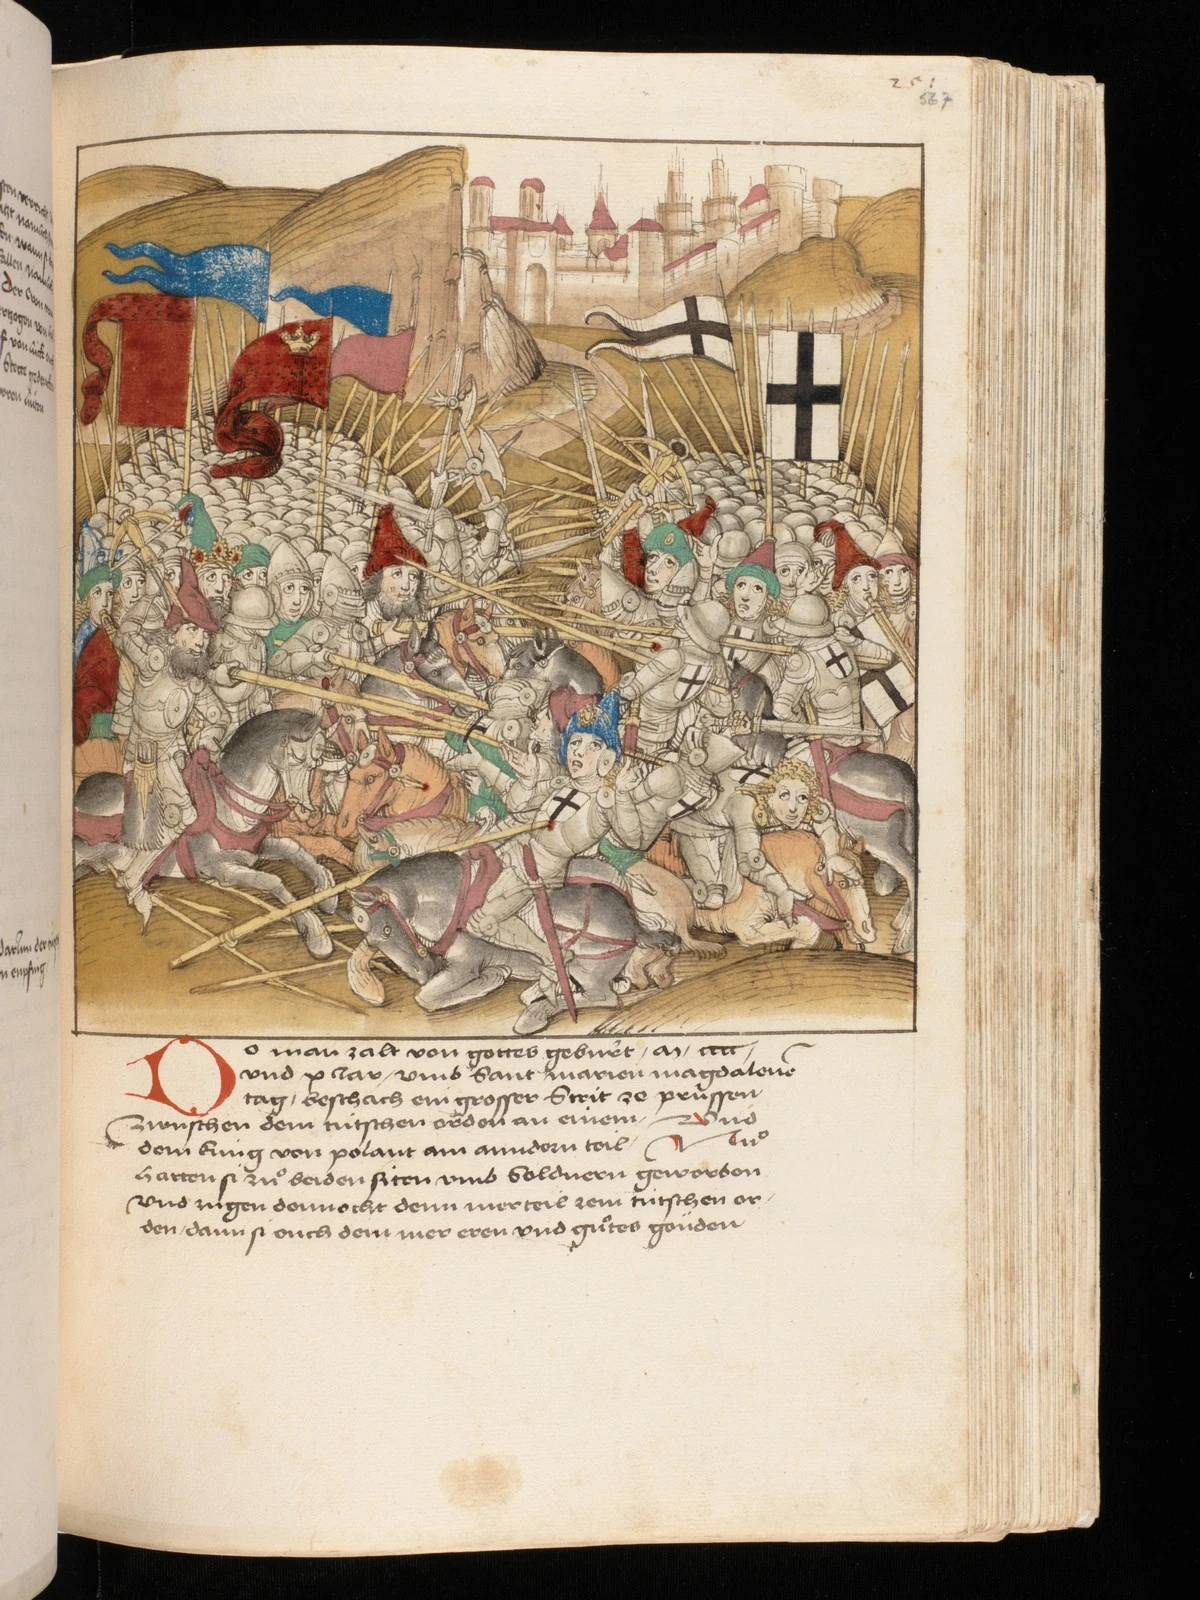 251
567
Do man zalt von gottes gebürt / M cccc /
vnd x Jar / vmb Sant marien magdalenē
tag / beschach ein grosser Strit ze prüssen
zwüschen dem tütschen orden an einem / Vnd
dem küng von polant am anndern teil / Nuͦ
hatten si zuͦ beiden siten vmb Soldnern geworben
Vnd zugen dennocht denn merteil zem tütschen or /
den / dann si ouch dem mer eren vnd guͦtes gonden